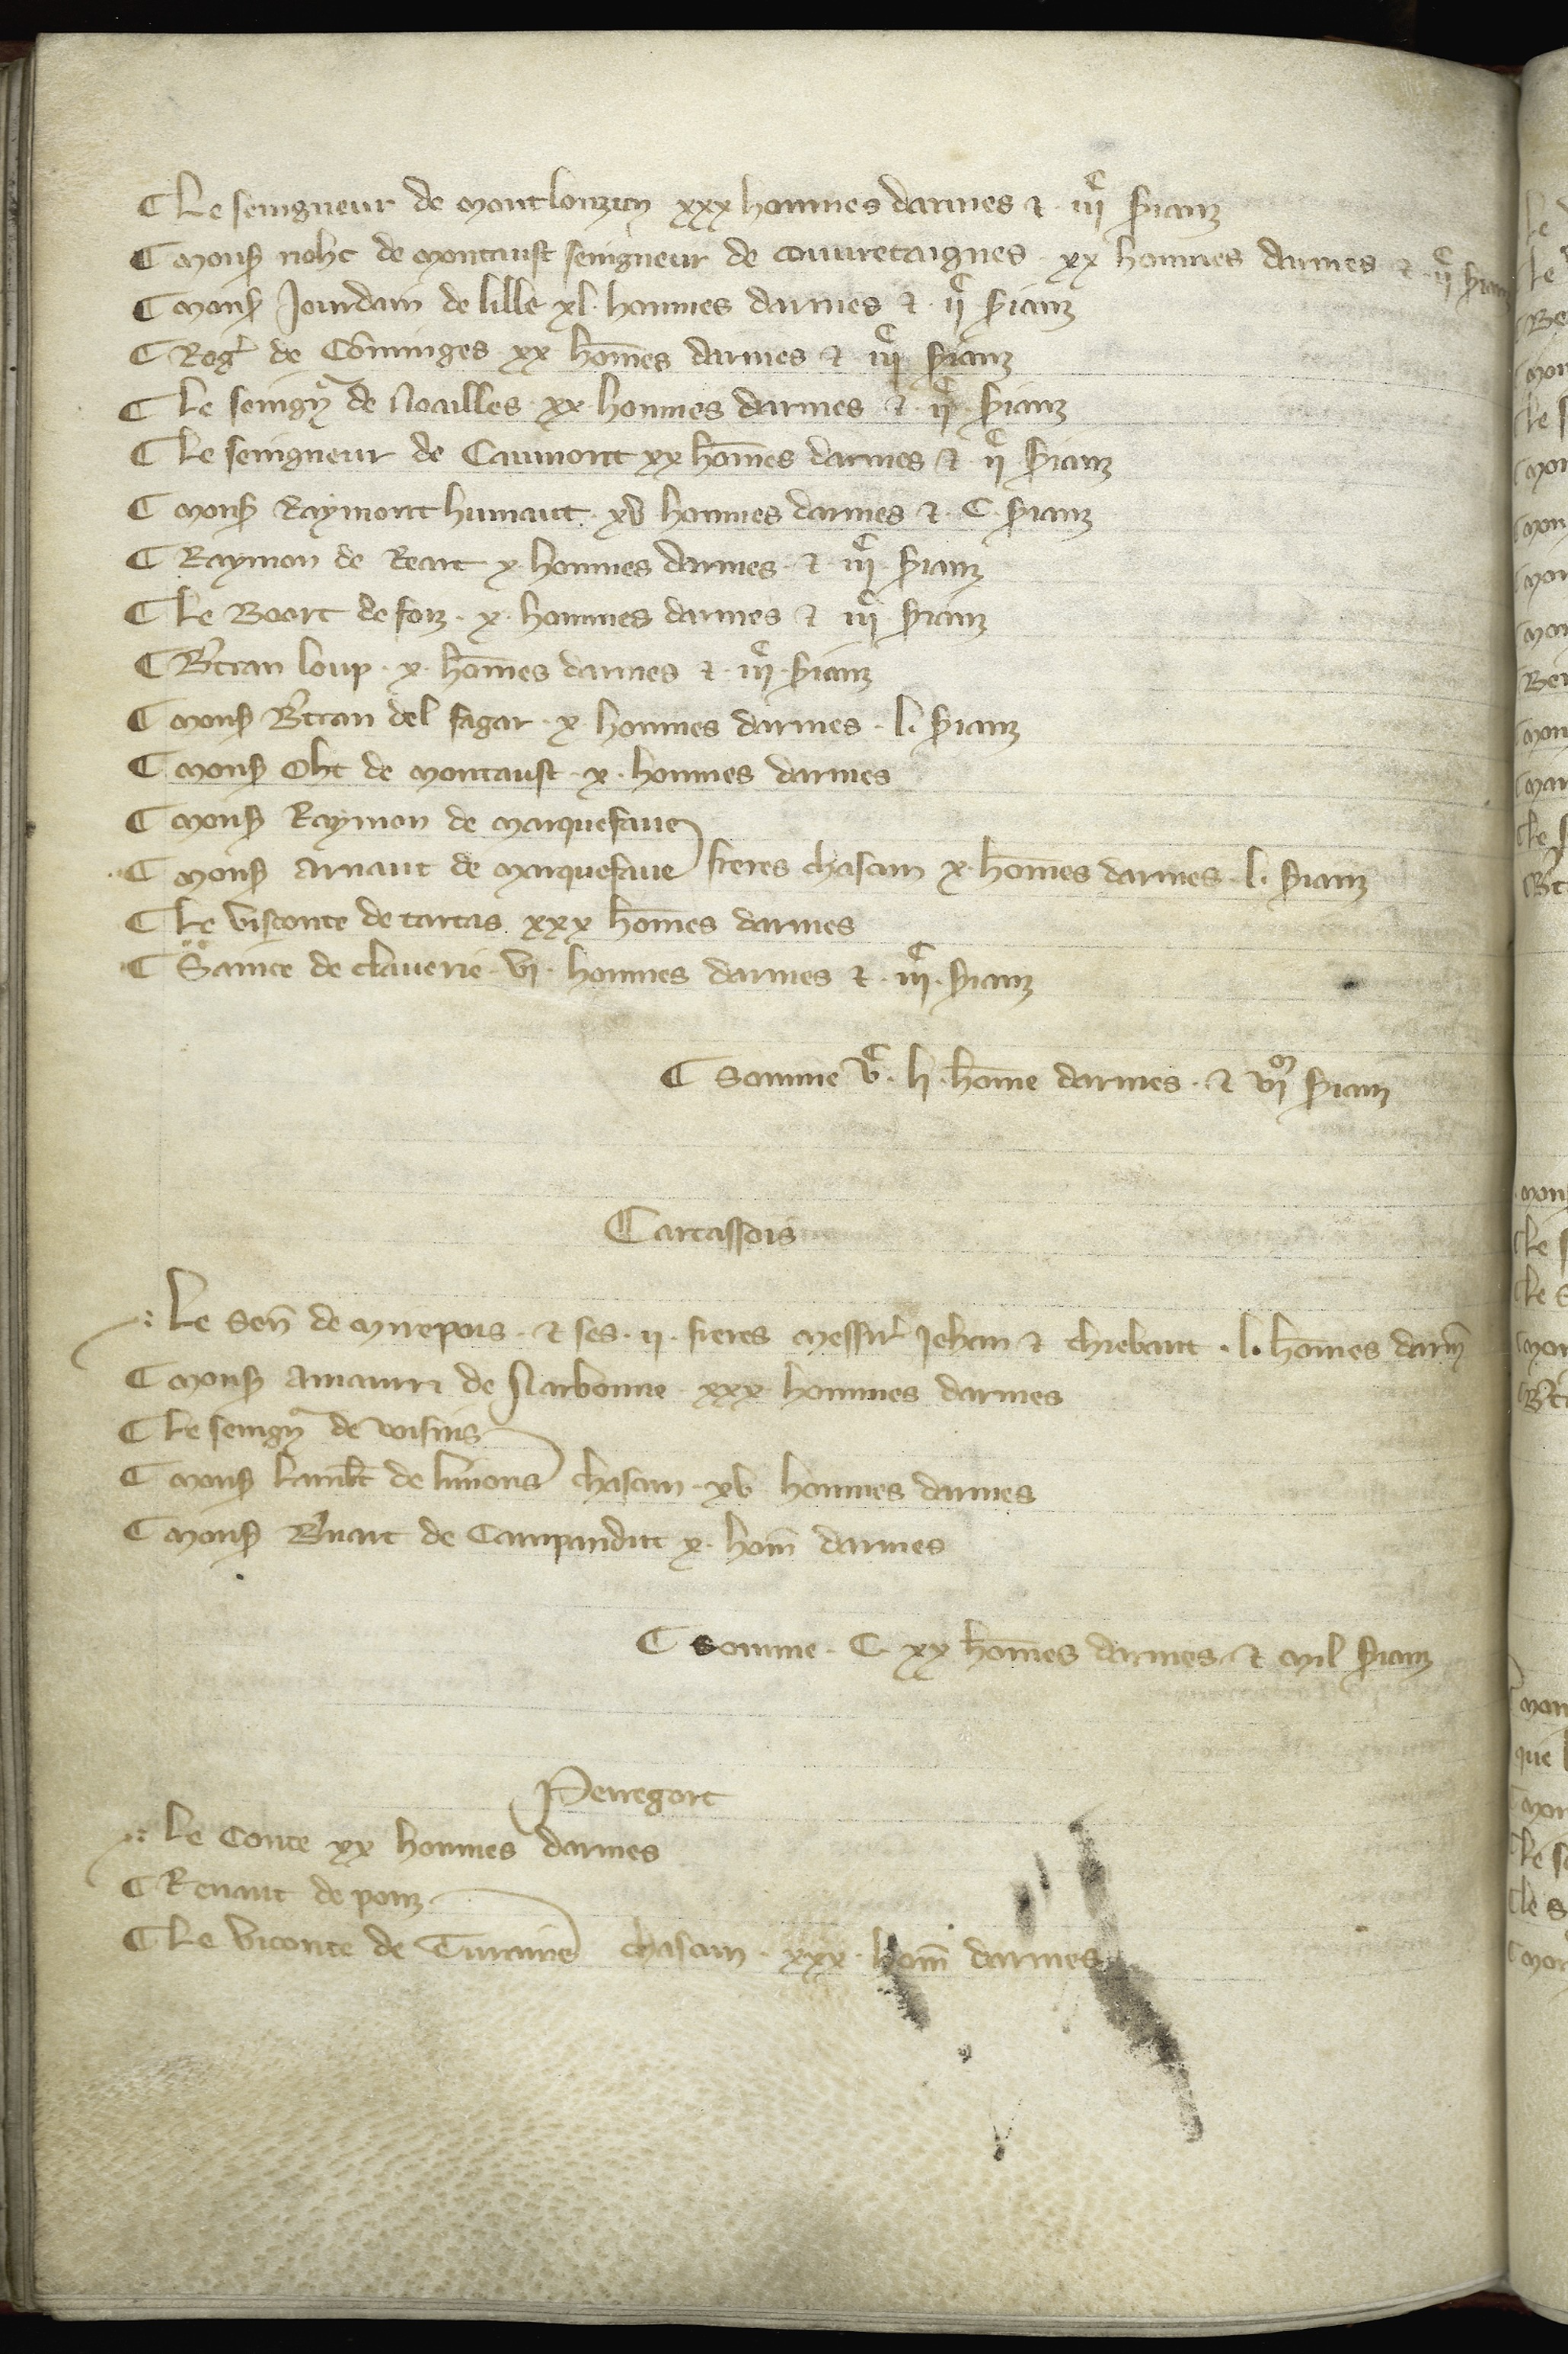 Le seingneur de montlonzun xxx hommes darmes et iijc sianz
Mons nohc de montaust seingneur de couuretaignes xx hommes darmes et ijc
Mons Jourdain de lille xl hommes darmes et ijc sianz
Rog de Cominges xx homes darmes et iijc sianz
Le seingr de Noailles xx hommes darmes et ijc sianz
Le seingneur de Caumont xx homes darmes et ijc sianz
Mons Raymont hunaut xv hommes darmes et C sianz
Raymon de Reaut x hommes darmes et iijc sianz
Le Boort de foiz x hommes darmes et iijc sianz
Btran loup x homes darmes et iijc sianz
Mons Btran del fagar x hommes darmes l sianz
Mons Oht de montaust x hommes darmes
Mons Raymon de marquefaue
Mons Arnaut de marquefaue freres chascun x homes darmes l sianz
Le visconte de tartas xxx homes darmes
Sance de clauerie vi hommes darmes et iijc sianz
Somme vc li home darmes et vim sianz
Carcassois
Le sen de mirepois et ses ij freres messir Jehan et thiebaut l homes darm
Mons Amaurri de Narbonne xxx hommes darmes
Le seingr de voisins
Mons Lambt de limons chascun xv hommes darmes
Mons Bnart de Campandut x hom darmes
Somme C xx homes darmes et mil sianz
Perregort
Le Conte xx hommes darmes
Renaut de ponz
Le viconte de Turaine chascun xxx hom darmes